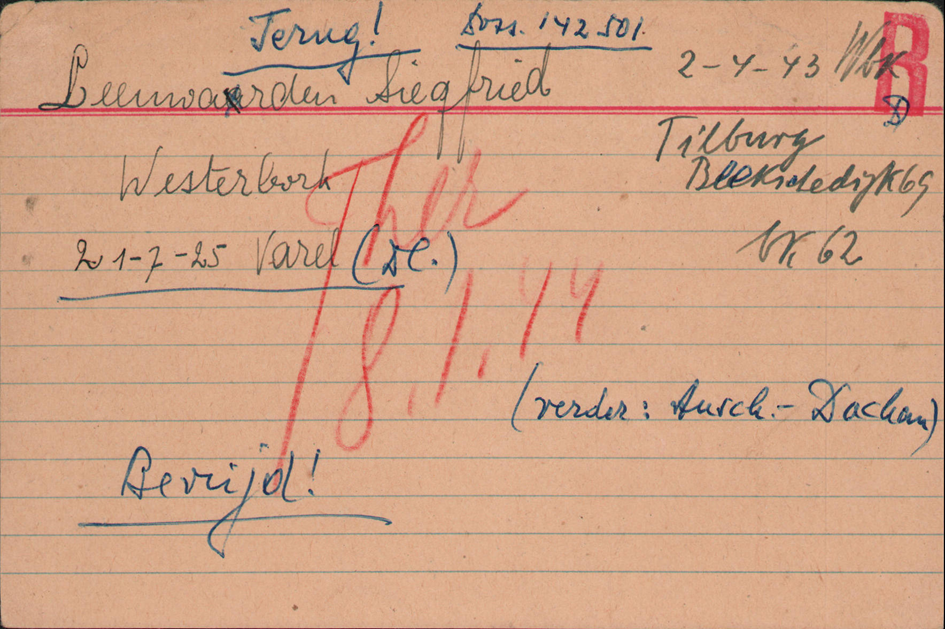 Terug! Doss. 142501.
Leenwaarden Siegfried 2-4-43 Wbk R
D
Tilburg
Westerbork Blekschedijk 69
21-7-25 Varel (Dl.) Vk 62
Ther
8.1.44
(verder: Ausch.- Dachau)
Bevrijd!